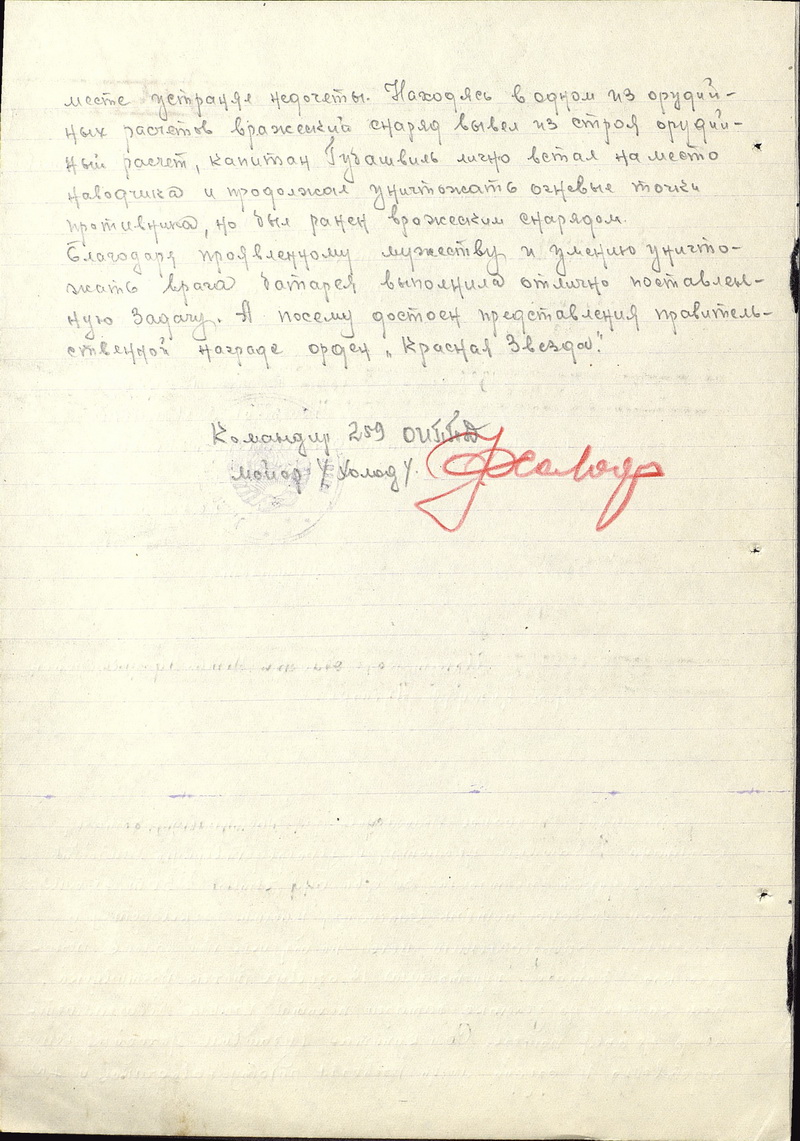 месте устраняя недочеты. Находясь в одном из орудий-
ных расчетов вражеский снаряд вывел из строя орудий-
ный расчет, капитан Гудашвиль лично встал на место
наводчика и продолжал уничтожать огневые точки
противника, но был ранен врожеским снарядом.
Благодаря проявленному мужеству и умению уничто-
жать врага батарея выполнила отлично поставлен-
ную задачу. А посему достоен представления правитель-
ственной награде орден „Красная Звезда".
Командир 289 ОИПТД
майор / Холод /.